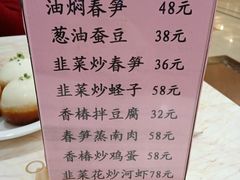 油焖春笋 48元
葱油蚕豆 38元
韭菜炒春笋 36元
韭菜炒蛏子 58元
香椿拌豆腐 32元
春笋蒸南肉 58元
香椿炒鸡蛋 58元
韭菜花炒河虾 78元